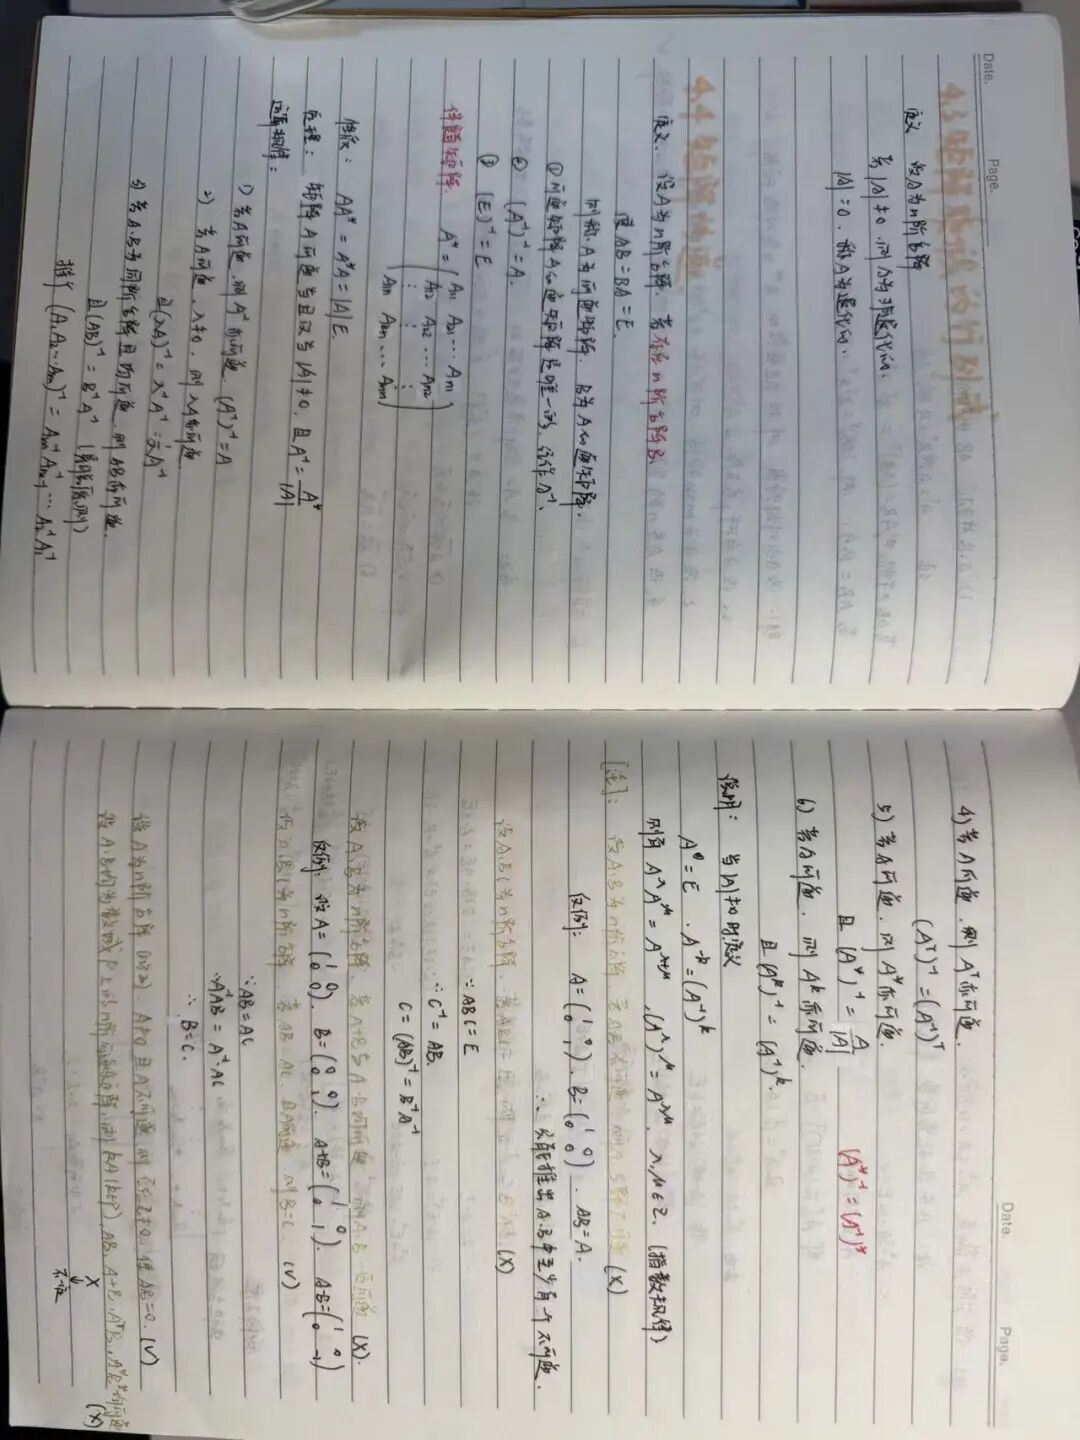 Date.
Page.
4.3 矩阵乘积的行列式
定义 设A为n阶方阵
若|A|≠0,则A为非退化的.
|A|=0,称A为退化的.
4.4 矩阵的逆
定义. 设A为n阶方阵. 若存在n阶方阵B
使AB=BA=E.
则称A为可逆矩阵. B为A的逆矩阵.
①可逆矩阵A的逆矩阵是唯一的, 记作A⁻¹.
② (A⁻¹)⁻¹=A.
③ (E)⁻¹=E
伴随矩阵. A*=(A₁₁ A₂₁ … Aₙ₁
A₁₂ A₂₂ … Aₙ₂
⋮ ⋮ ⋮
A₁ₙ A₂ₙ … Aₙₙ)
性质: AA*=A*A=|A|E.
定理: 矩阵A可逆当且仅当|A|≠0, 且A⁻¹=A*/|A|
运算规律:
1) 若A可逆,则A⁻¹亦可逆. (A⁻¹)⁻¹=A
2) 若A可逆, λ≠0, 则λA亦可逆
且(λA)⁻¹=λ⁻¹A⁻¹
3) 若A.B为同阶方阵且均可逆,则AB亦可逆.
且(AB)⁻¹=B⁻¹A⁻¹
推广 (A₁A₂…Aₘ)⁻¹=Aₘ⁻¹Aₘ₋₁⁻¹…A₂⁻¹A₁⁻¹
Date.
Page.
4) 若A可逆,则Aᵀ亦可逆.
(Aᵀ)⁻¹=(A⁻¹)ᵀ
5) 若A可逆,则A*亦可逆.
且(A*)⁻¹=A/|A| (A*)⁻¹=(A⁻¹)*
6) 若A可逆,则Aᵏ亦可逆.
且(Aᵏ)⁻¹=(A⁻¹)ᵏ.
当|A|≠0时,定义
A⁰=E. A⁻ᵏ=(A⁻¹)ᵏ
则有 A^λA^μ=A^(λ+μ), (A^λ)^μ=A^(λμ). λ,μ∈Z. (指数规律)
[注]: 设A.B为n阶方阵,若AB不可逆,则A.B都不可逆 (X)
反例: A=(1 0
0 1). B=(1 0
0 0). AB=A.
∴只能推出A.B中至少有一个不可逆.
设A.B.C为n阶方阵. 若ABC=E (X)
∵ABC=E
∴C⁻¹=AB.
C=(AB)⁻¹=B⁻¹A⁻¹
设A.B为n阶方阵,若A+B与A-B均可逆,则A.B一定可逆 (X).
反例: 设A=(1 0
0 0). B=(0 0
0 1). A+B=(1 0
0 1). A-B=(1 0
0 -1)
设A.B.C为n阶方阵, 若AB=AC, 且A可逆, 则B=C (√)
∵AB=AC
∴A⁻¹AB=A⁻¹AC
∴B=C.
设A为n阶方阵(n≥2). A≠0且A不可逆,则存在B≠0.使AB=0.(√)
设A.B均为数域P上的n阶可逆方阵,则kA(k∈P),AB,A+B,AᵀB,A*B*均可逆
X
↓
不一定
(X)